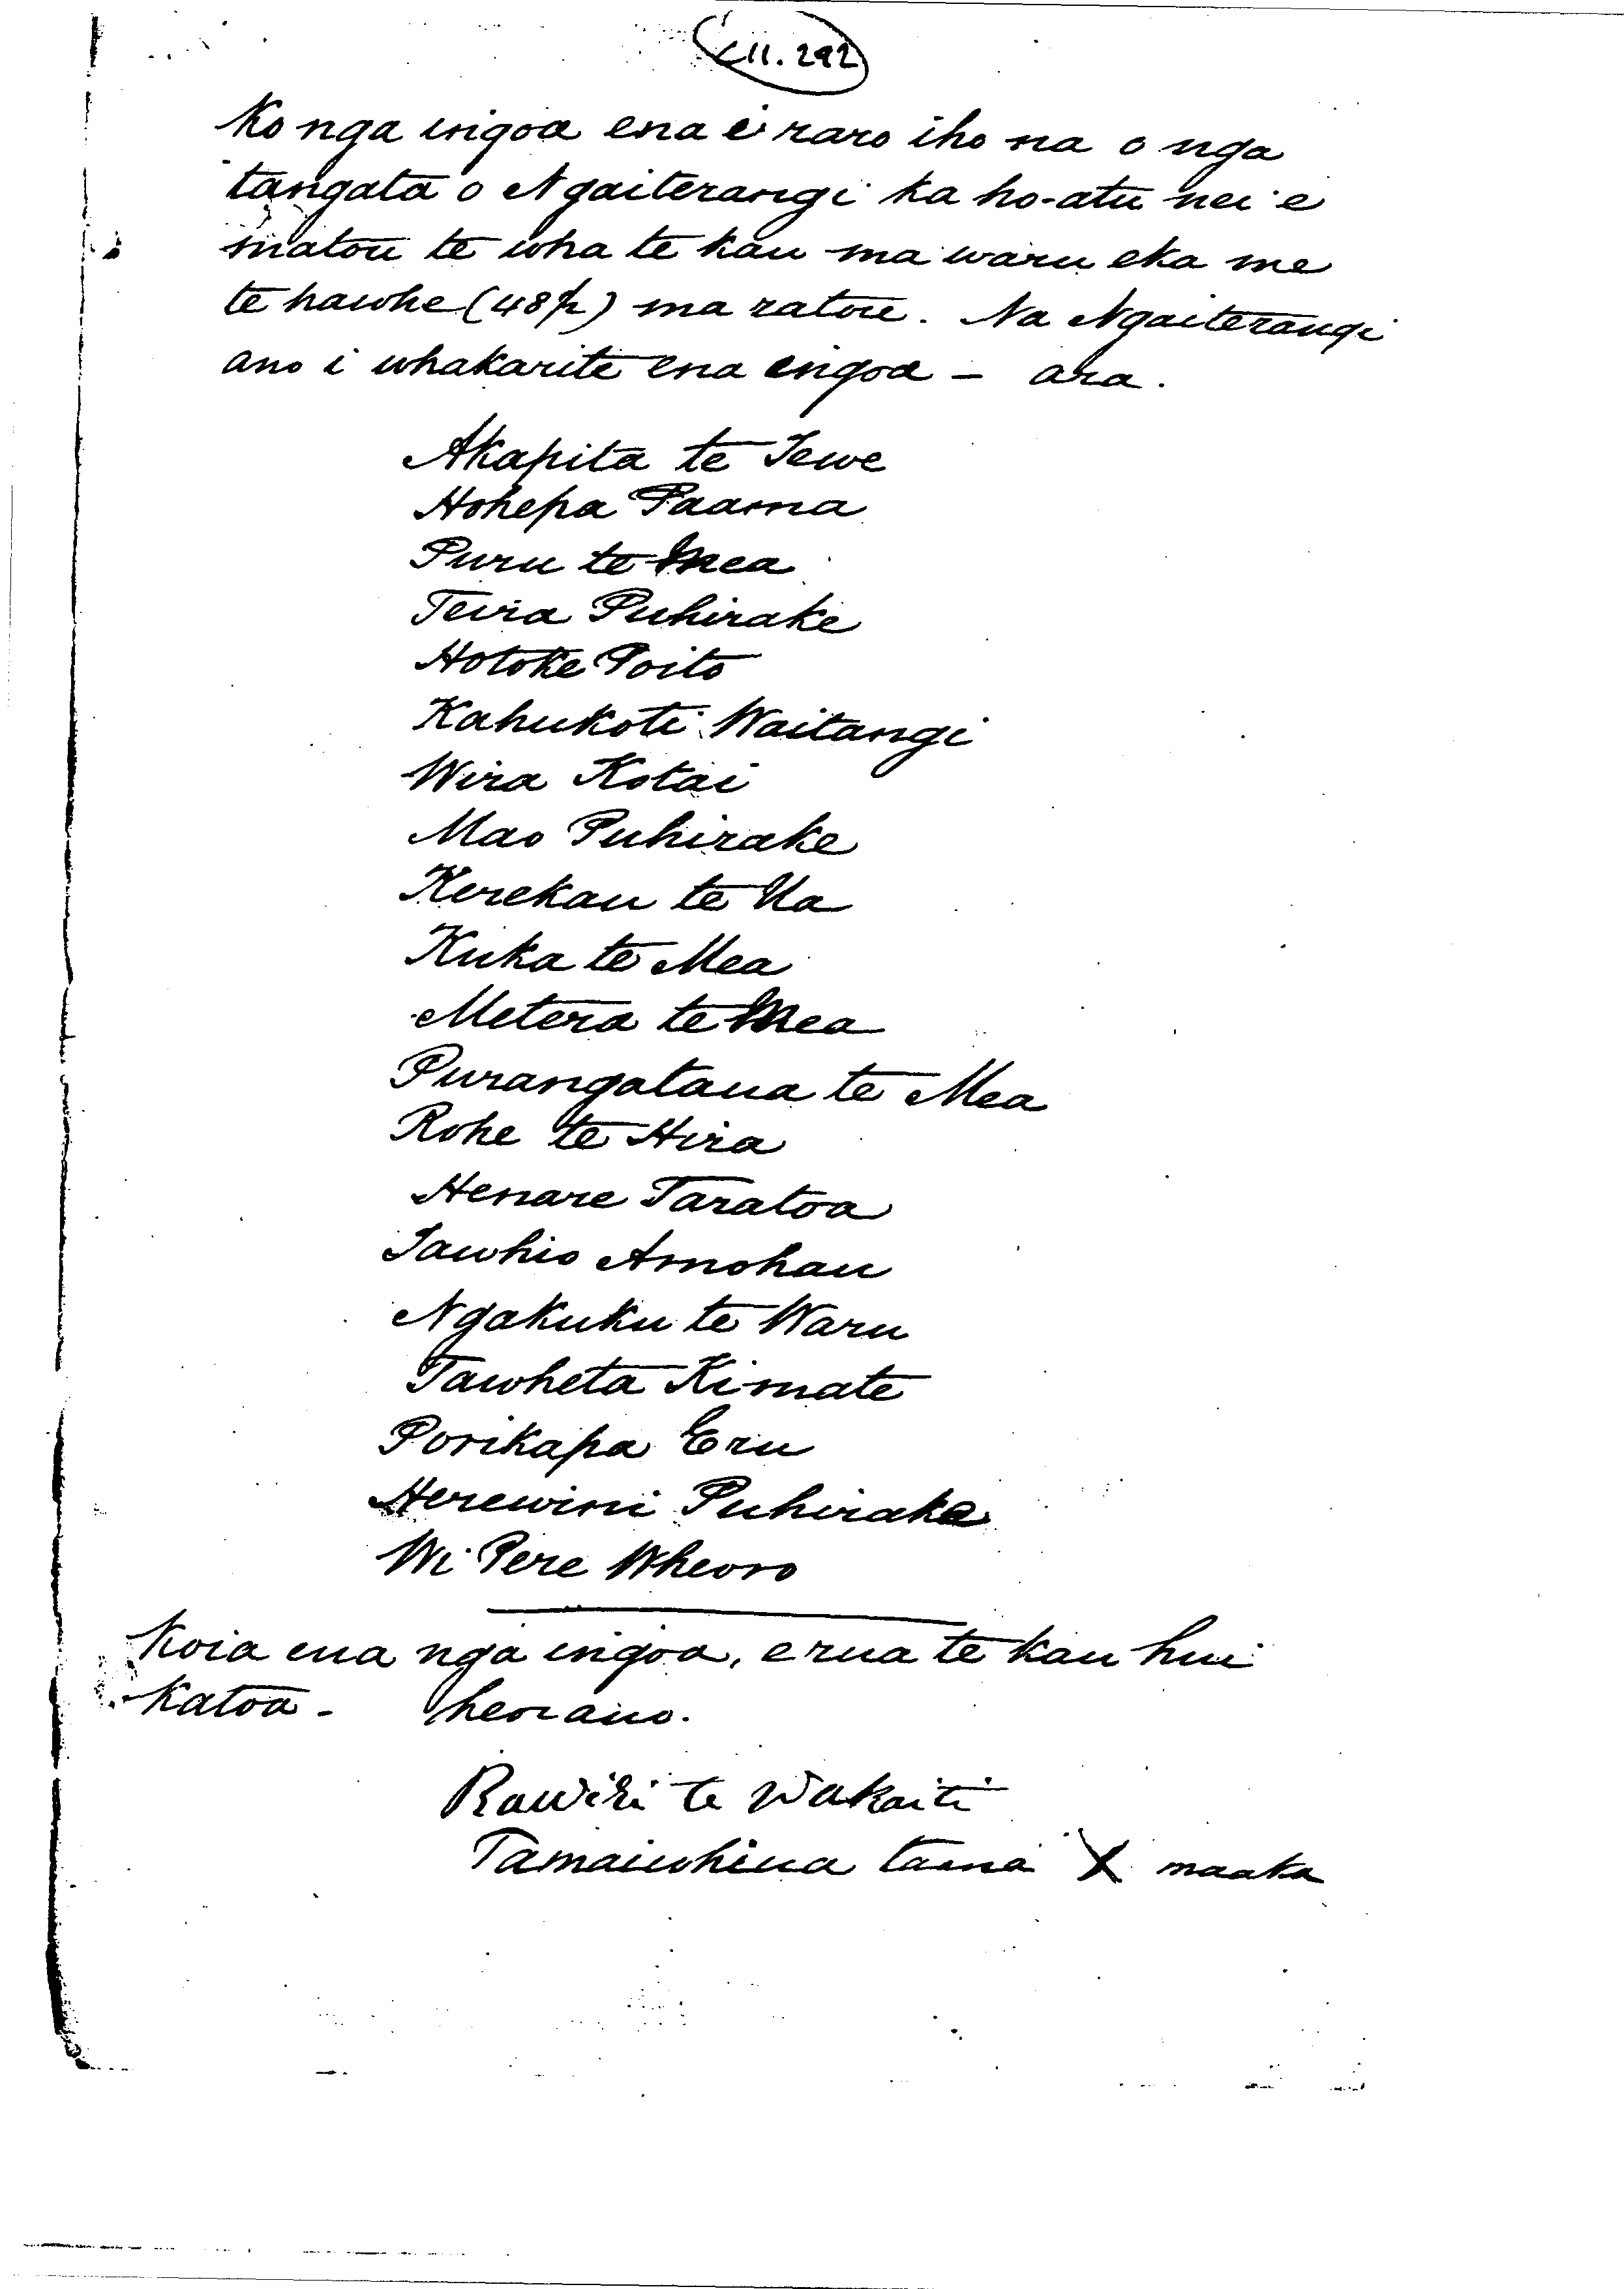 XII. 292
Ko nga ingoa ena i raro iho na o nga
tangata o Ngaiterangi ka ho-atu nei e
matou te wha te kau ma waru eka me
te hawhe (48½) ma ratou. Na Ngaiterangi
ano i whakarite ena ingoa - ara.
Akapita te Tewe
Hohepa Paama
Puru te Mea
Teira Puhirake
Hotoke Poito
Kahukoti Waitangi
Wira Kotai
Mao Puhirake
Kerekau te Ua
Kuka te Mea
Metera te Mea
Purangataua te Mea
Rohe te Hira
Henare Taratoa
Tawhio Amohau
Ngakuku te Waru
Tawheta Kimate
Porikapa Eru
Herewini Puhirake
Wi Pere Wheoro
Koia ena nga ingoa, e rua te kau hui
katoa - heoi ano.
Rawiri te Wakaiti
Tamaiwhiua tana X maaka